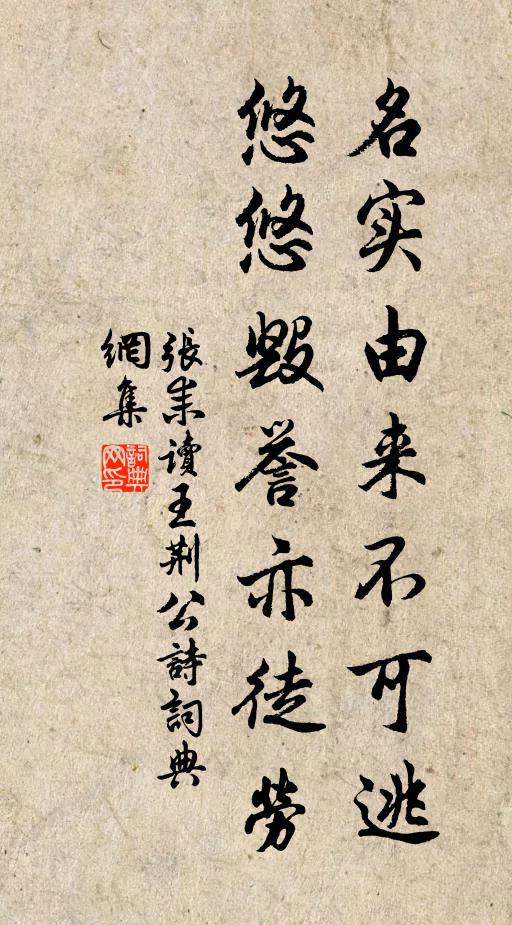 名实由来不可逃
悠悠毁誉亦徒劳
張耒讀王荆公詩詞典
網集
詞典
网印